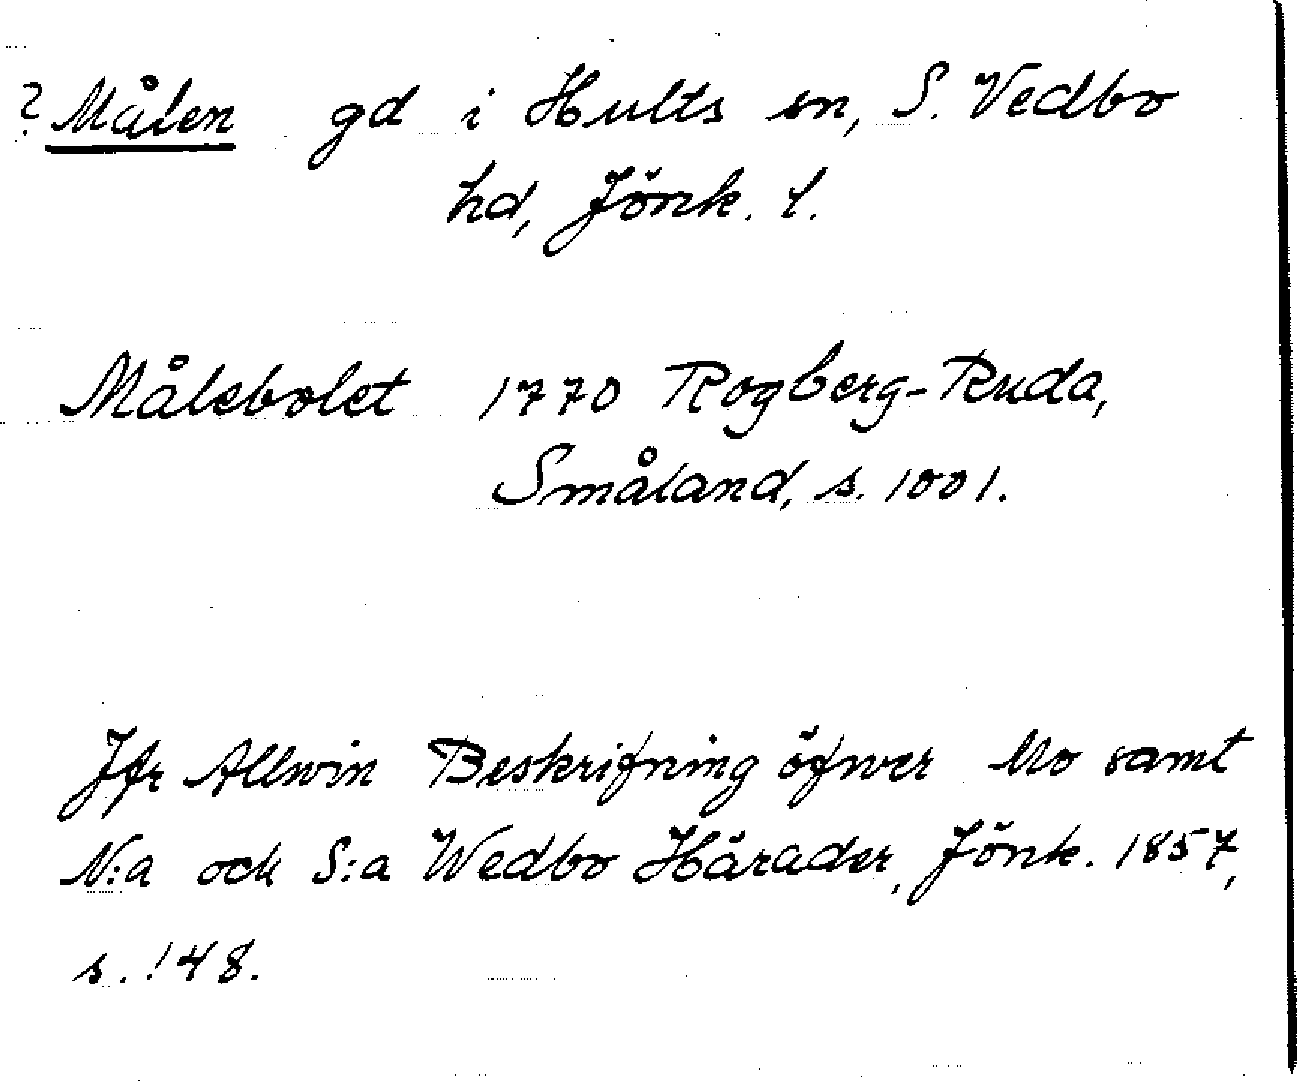 ? Målen gd i Hults sn, S. Vedbo
hd, Jönk. l.
Målebolet 1770 Rogberg-Ruda,
Småland, s. 1001.
Jfr Allvin Beskrifning öfwer Mo samt
N:a och S:a Wedbo Härader, Jönk. 1857,
s. 148.